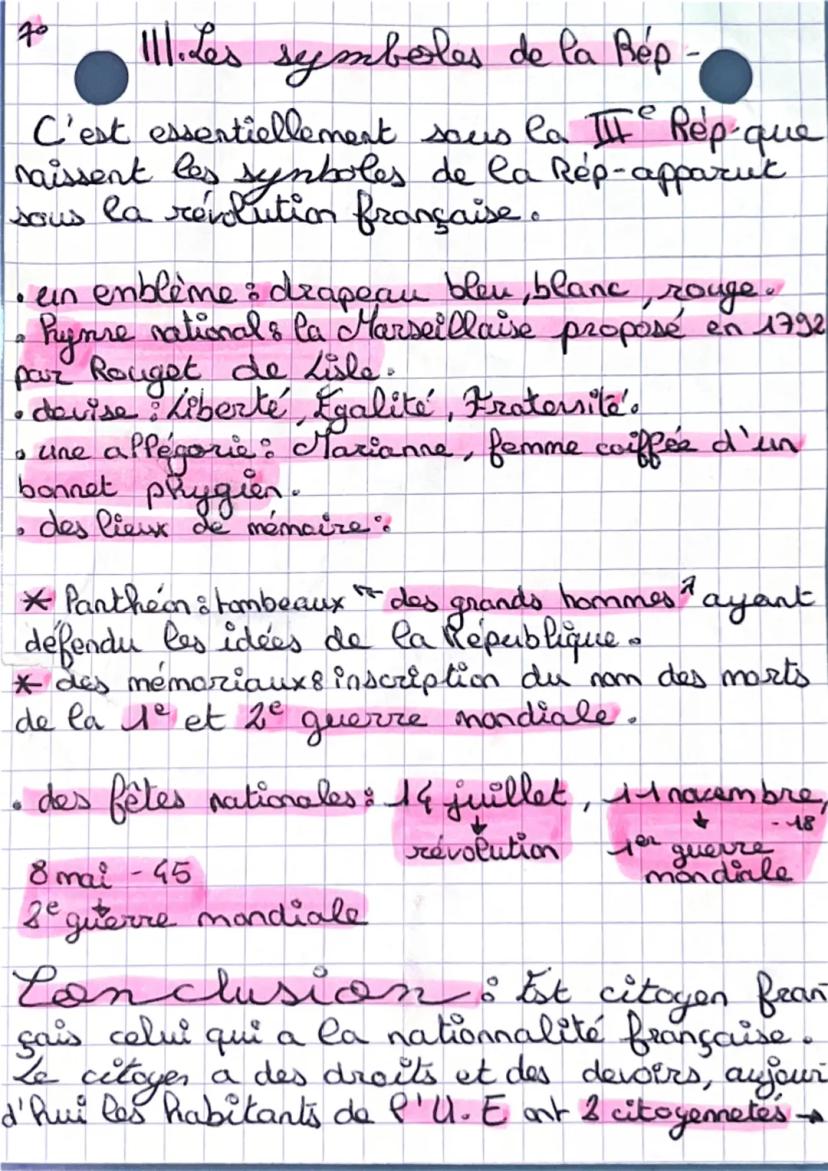 7°
III. Les symboles de la Rép-
C'est essentiellement sous la IIIe Rép. que
naissent les symboles de la Rép-apparut
sous la révolution française.
• un enblème : drapeau bleu, blanc, rouge.
• hymne national : la Marseillaise proposé en 1792
par Rouget de Lisle.
• devise : Liberté, Égalité, Fraternité.
• une allégorie : Marianne, femme coiffée d'un
bonnet phrygien.
• des lieux de mémoire :
* Panthéon : tombeaux "des grands hommes" ayant
défendu les idées de la République.
* des mémoriaux : inscription du nom des morts
de la 1e et 2e guerre mondiale.
• des fêtes nationales : 14 juillet, 11 novembre,
↓ ↓ -18
révolution 1er guerre
mondiale
8 mai - 45
↓
2e guerre mondiale
Conclusion : Est citoyen fran-
çais celui qui a la nationnalité française.
Le citoyen a des droits et des devoirs, aujour-
d'hui les habitants de l'U.E ont 2 citoyennetés →